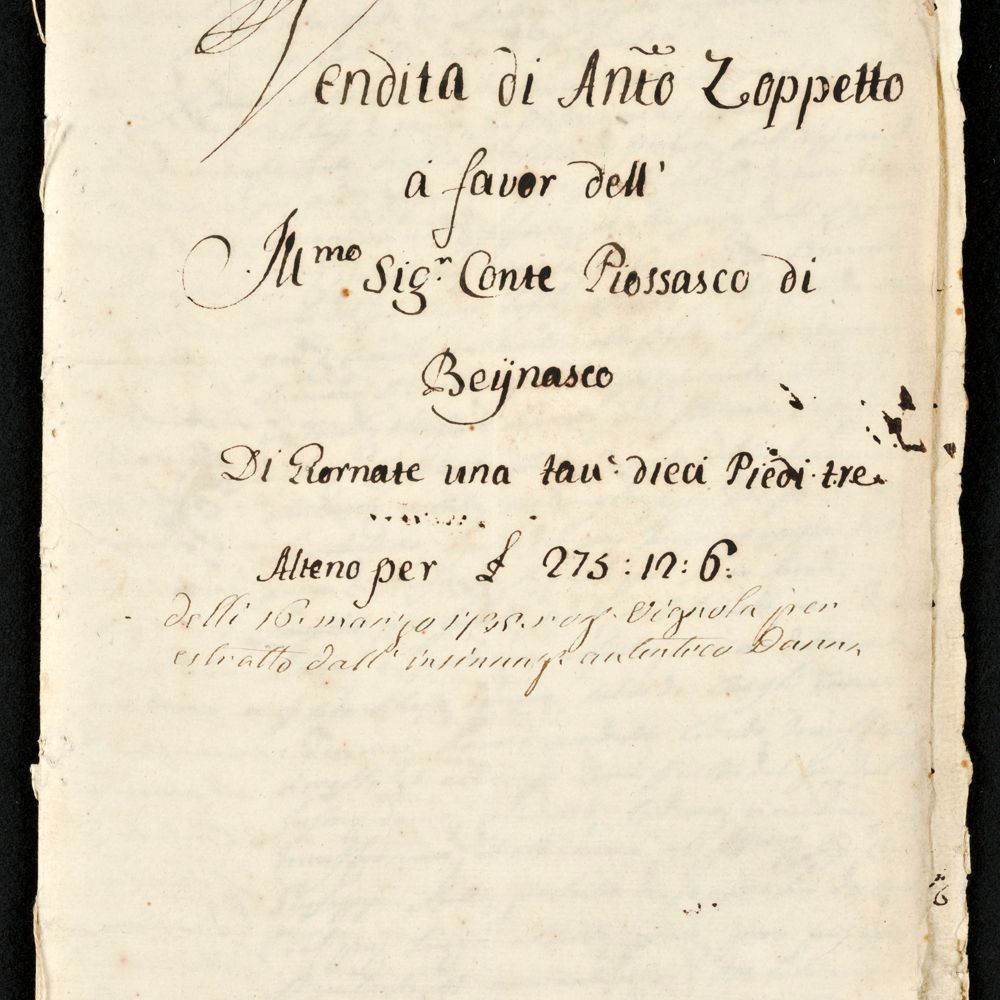 Vendita di Anto Zoppetto
a favor dell'
Ill.mo Sig.r Conte Piossasco di
Beijnasco
Di Giornate una tau.e dieci Piedi tre
Alteno per £ 275:12:6:
delli 16. marzo rog. Vignola per
estratto dall' insinuaz.e autentico
6